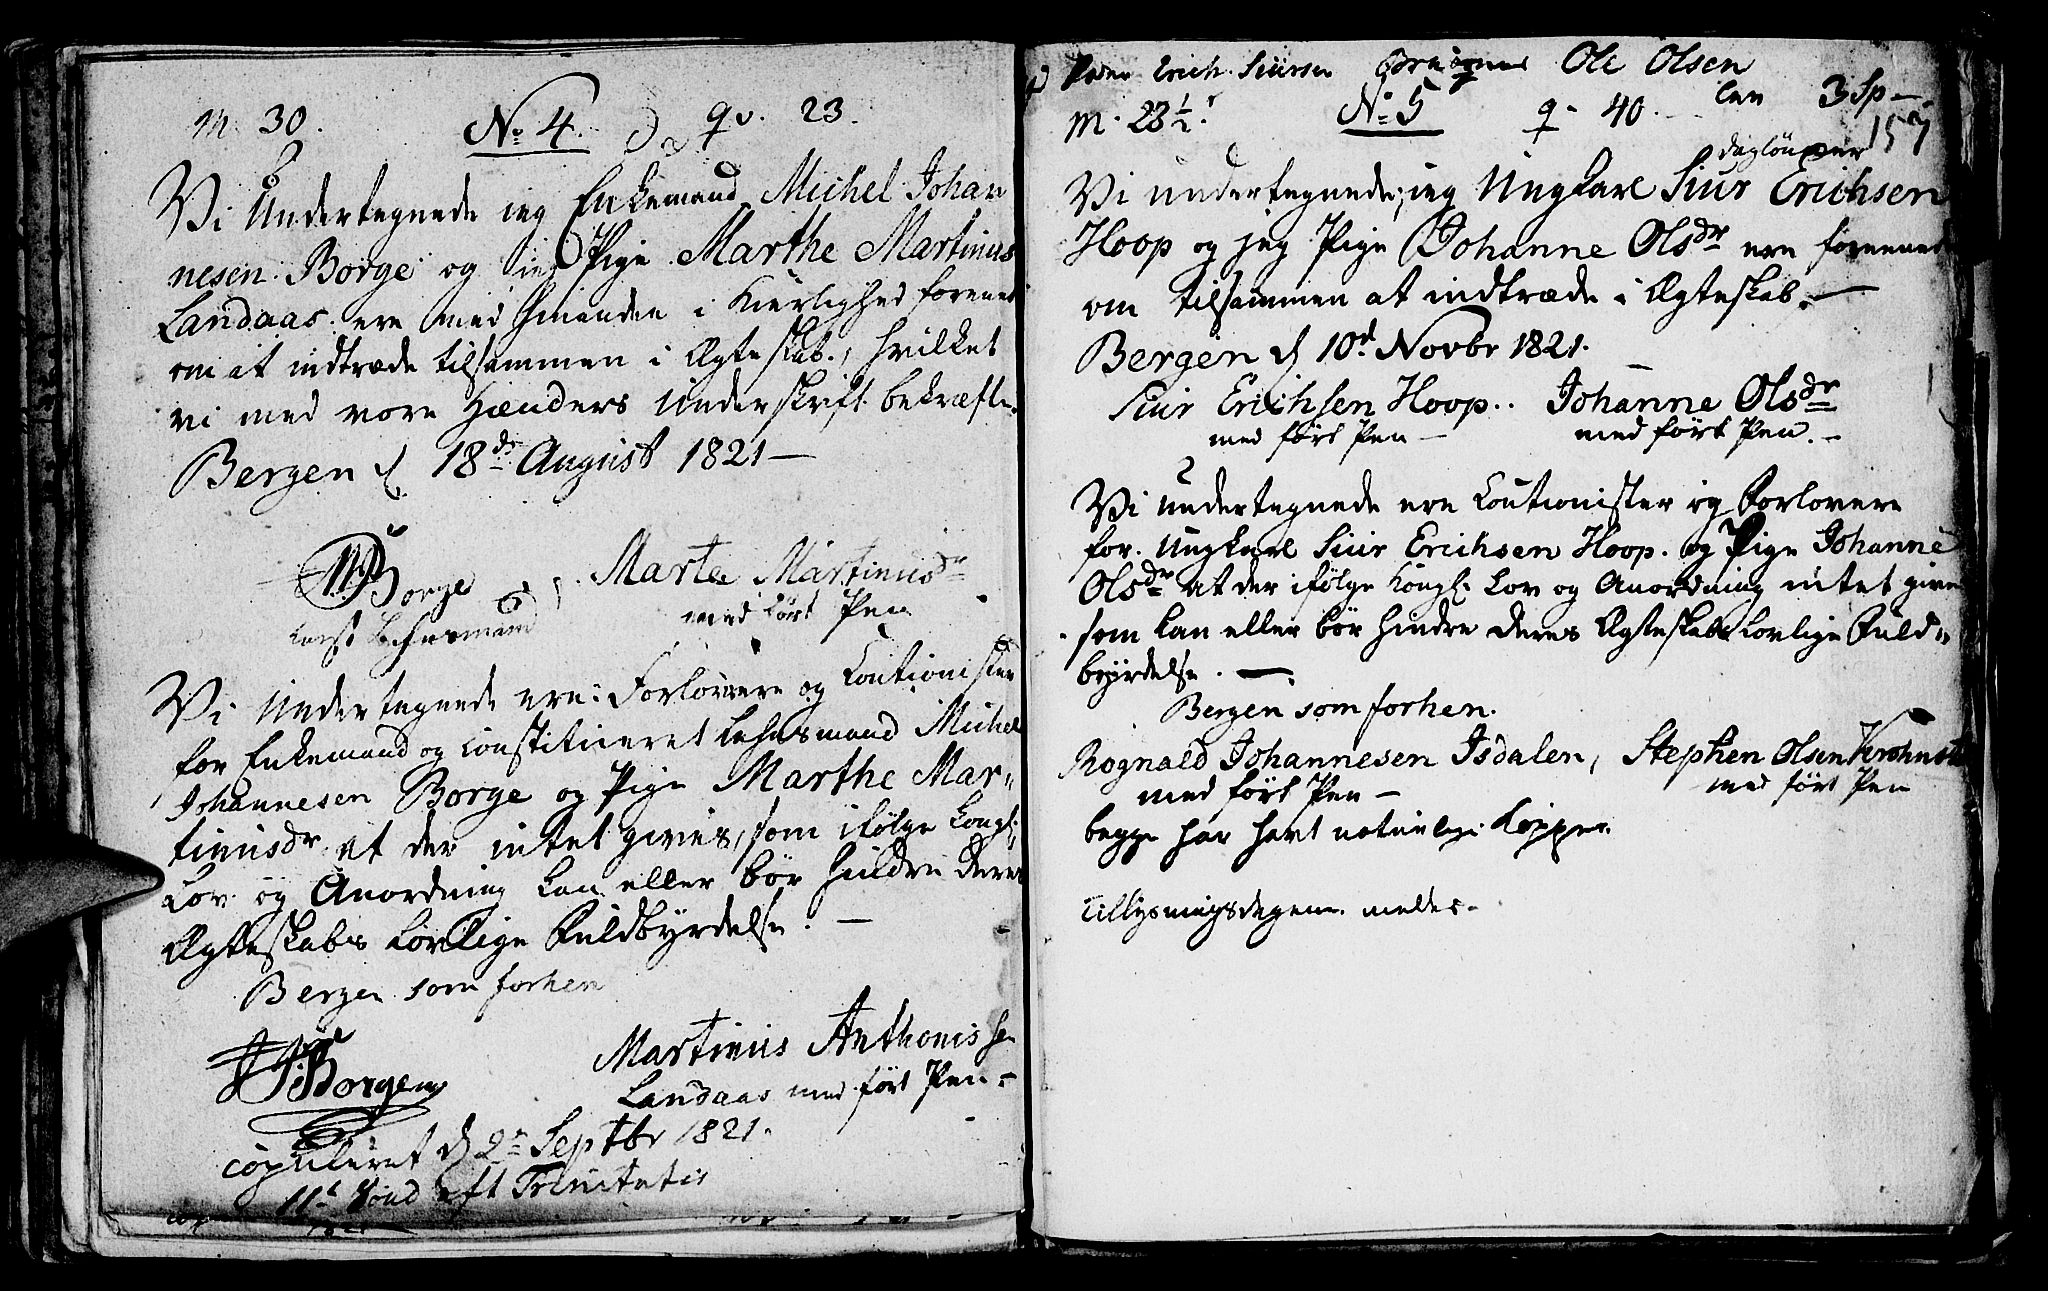 M. 30. No 4. qv. 23.
Vi Undertegnede jeg Enkemand Michel Johan
nesen Borge og jeg Pige Marthe Martinus
Landaas ere med hinanden i Kierlighed forenet
om at indtræde tilsammen i Ægteskab, hvilket
vi med vore Hænders Underskrift bekræfte.
Bergen d 18de August 1821 —
Borge Marte Martinusdr
Const Lehnsmand med ført Pen
Vi Undertegnede ere Forlovere og Coutionister
for Enkemand og Constitueret Lehnsmand Michel
Johannesen Borge og Pige Marthe Mar-
tinusdr at der intet gives, som ifølge Kongl:
Lov og Anordning kan eller bør hindre deres
Ægteskabs Lovlige Fuldbyrdelse. —
Bergen som forhen
Borgen Martinus Anthonissen
Landaas med ført Pen -
Copuleret d 2n Septbr 1821.
11t Sönd eft Trinitatis
Erich Siursen Ole Olsen
M. 23½ No 5 q - 40. 3 Sp —
dagløner 157
Vi undertegnede, jeg Ungkarl Siur Erichsen
Hoop og jeg Pige Johanne Olsdr ere forenede
om tilsammen at indtræde i Ægteskab. —
Bergen d 10d Novbr 1821.
Siur Erichsen Hoop. Johanne Olsdr
med ført Pen — med ført Pen. -
Vi undertegnede ere Coutionister og Forlovere
for Ungkarl Siur Erichsen Hoop og Pige Johanne
Olsdr at der ifølge Kongl: Lov og Anordning intet gives
som kan eller bør hindre deres Ægteskabs Lovlige Fuld-
byrdelse. —
Bergen som forhen.
Rognald Johannesen Isdalen, Stephen Olsen
med ført Pen — med ført Pen
begge har havt naturlige Kopper.
Tillysningsdagene meldes -